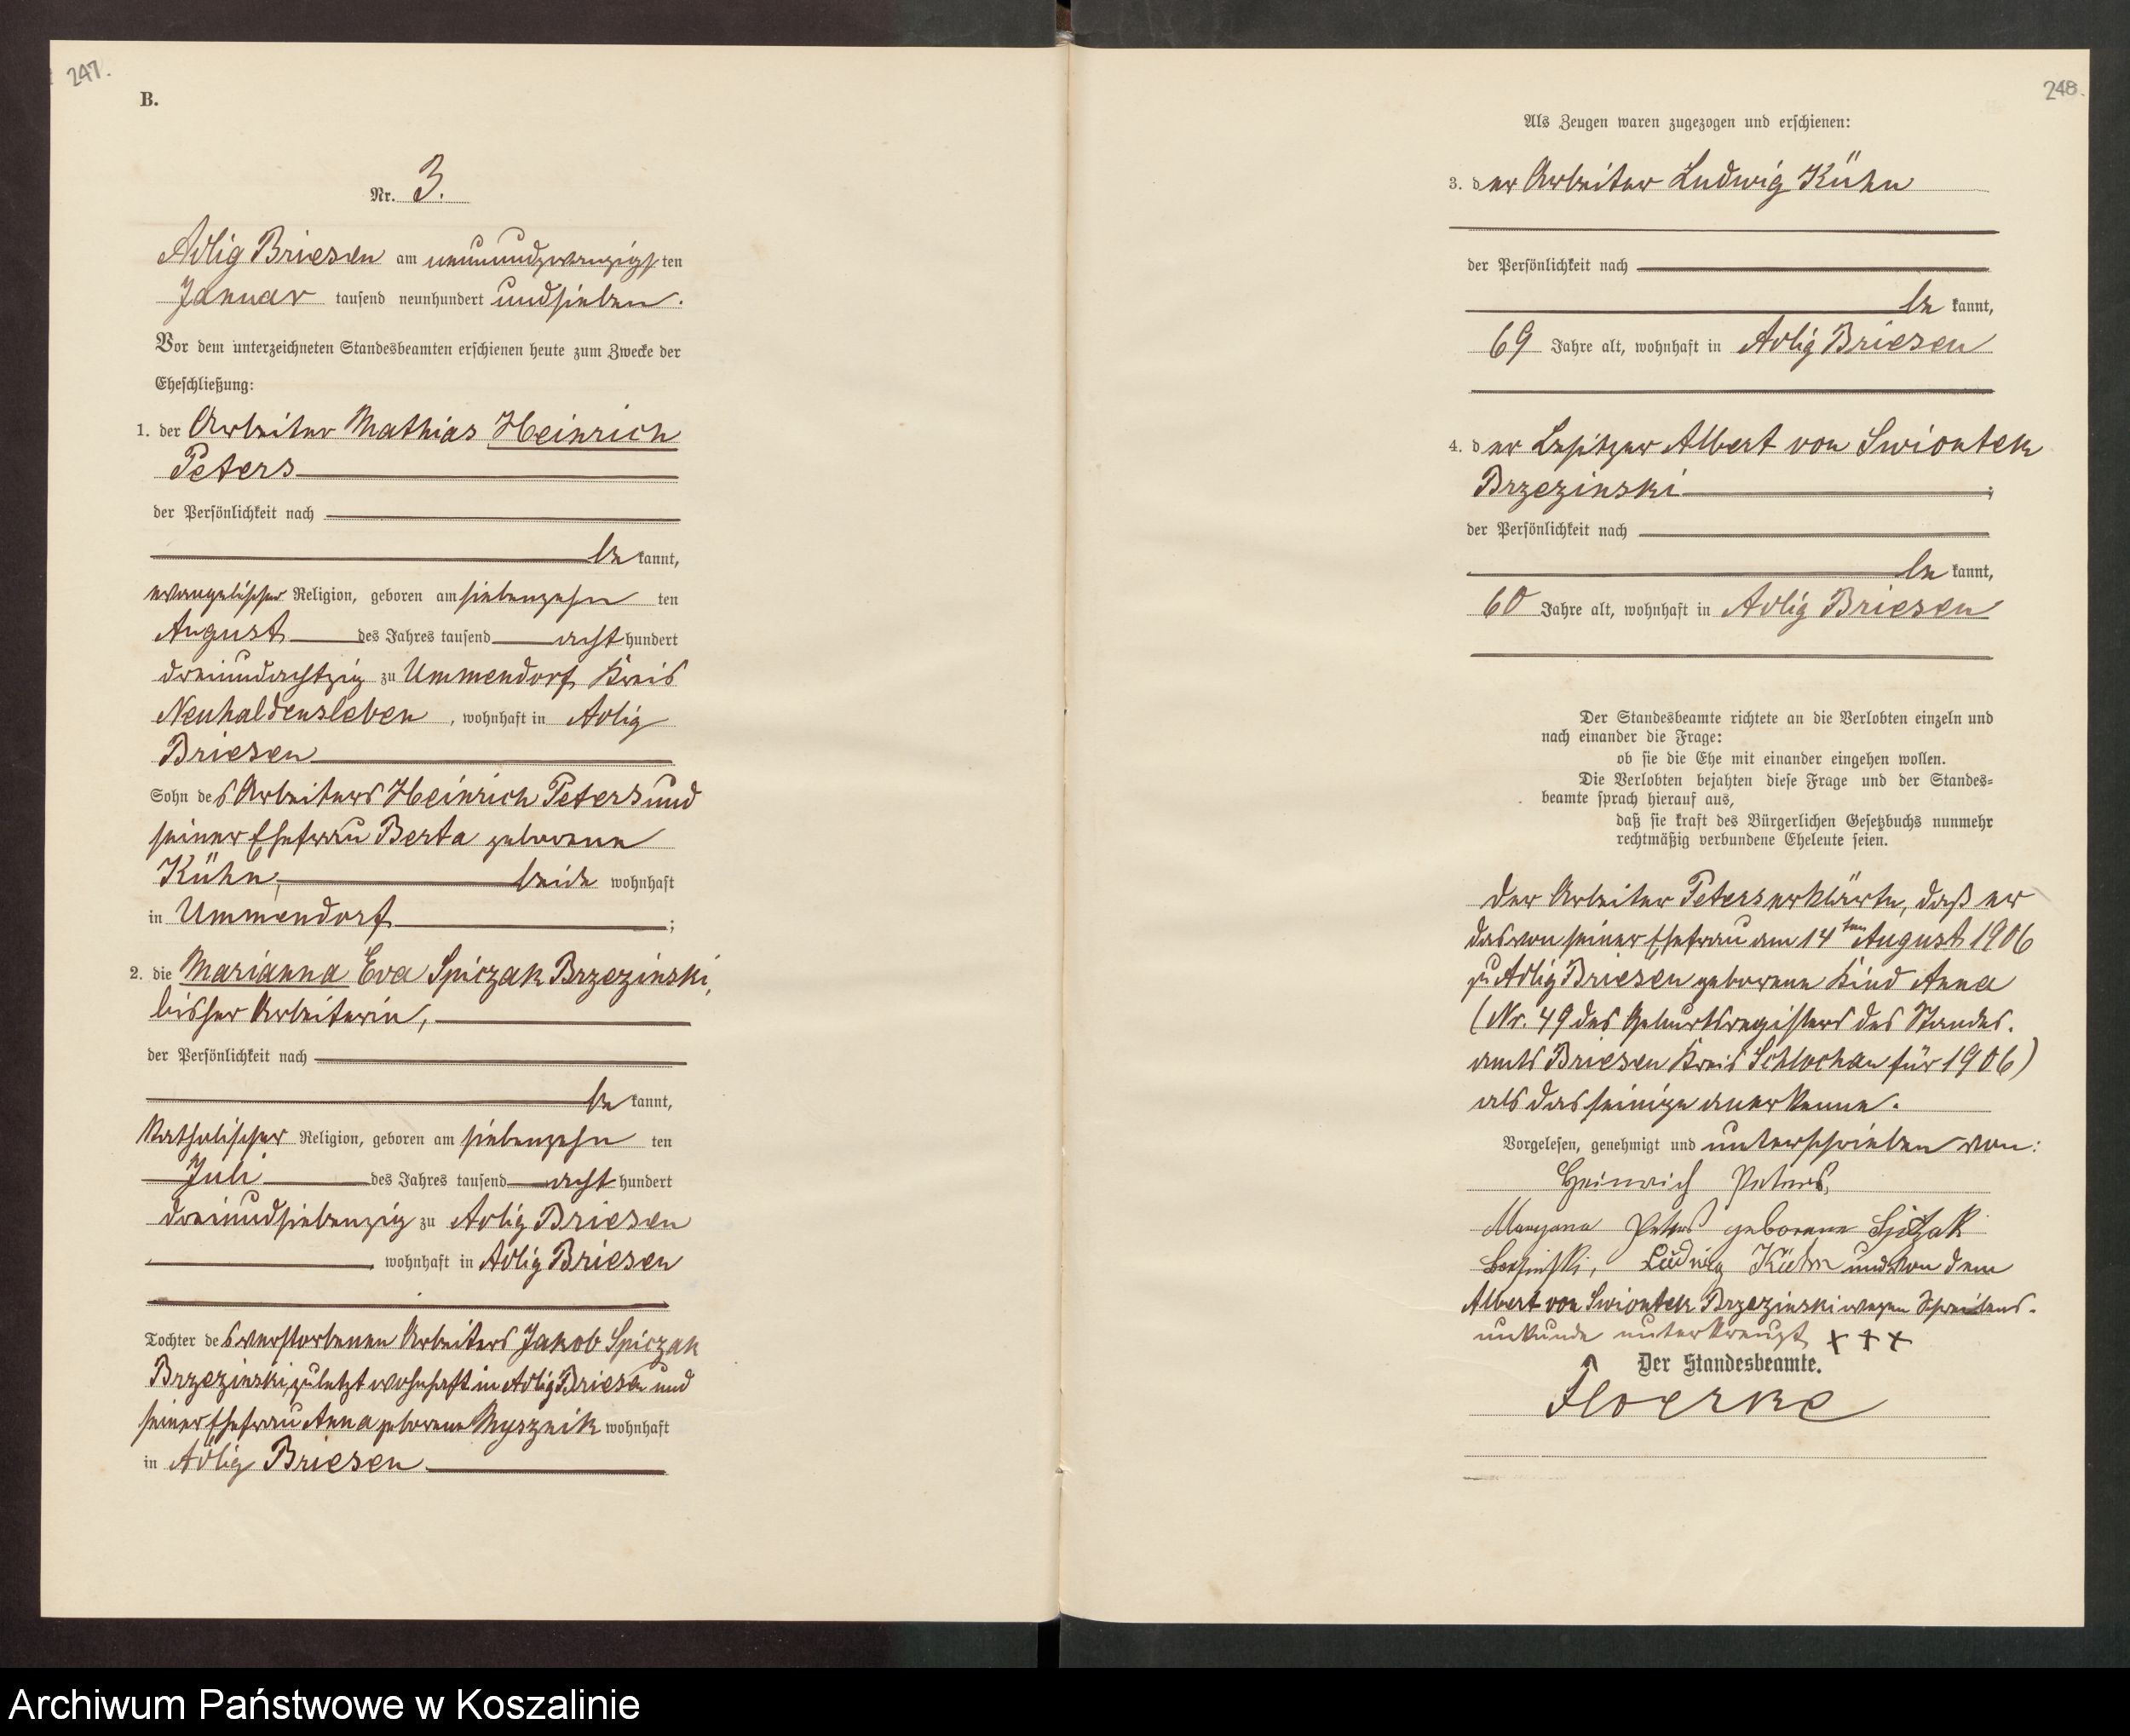 247.
B.
Nr. 3.
Adlig Briesen am neunundzwanzigsten
Januar tausend neunhundert undsieben.
Vor dem unterzeichneten Standesbeamten erschienen heute zum Zwecke der
Eheschließung:
1. der Arbeiter Mathias Heinrich
Peters
der Persönlichkeit nach
bekannt,
evangelischer Religion, geboren am siebenzehnten
August des Jahres tausend achthundert
dreiundachtzig zu Ummendorf, Kreis
Neuhaldensleben, wohnhaft in Adlig
Briesen
Sohn des Arbeiters Heinrich Peters und
seiner Ehefrau Berta geborene
Kühn, beide wohnhaft
in Ummendorf;
2. die Marianna Eva Spiczak Brzezinski,
bisher Arbeiterin,
der Persönlichkeit nach
bekannt,
katholischer Religion, geboren am siebenzehnten
Juli des Jahres tausend achthundert
dreiundsiebenzig zu Adlig Briesen
, wohnhaft in Adlig Briesen
Tochter des verstorbenen Arbeiters Jakob Spiczak
Brzezinski, zuletzt wohnhaft in Adlig Briesen und
seiner Ehefrau Anna geborene Mysznik wohnhaft
in Adlig Briesen
248.
Als Zeugen waren zugezogen und erschienen:
3. der Arbeiter Ludwig Kühn
der Persönlichkeit nach
bekannt,
69 Jahre alt, wohnhaft in Adlig Briesen
4. der Besitzer Albert von Swiontek
Brzezinski;
der Persönlichkeit nach
bekannt,
60 Jahre alt, wohnhaft in Adlig Briesen
Der Standesbeamte richtete an die Verlobten einzeln und
nach einander die Frage:
ob sie die Ehe mit einander eingehen wollen.
Die Verlobten bejahten diese Frage und der Standes=
beamte sprach hierauf aus,
daß sie kraft des Bürgerlichen Gesetzbuchs nunmehr
rechtmäßig verbundene Eheleute seien.
Der Arbeiter Peters erklärte, daß er
das von seiner Ehefrau am 14ten August 1906
zu Adlig Briesen geborene Kind Anna
(Nr. 49 des Geburtsregisters des Standes-
amts Briesen Kreis Schlochau für 1906)
als das seinige anerkenne.
Vorgelesen, genehmigt und unterschrieben von:
Heinrich Peters,
Maryana Peters geborene
Ludwig Kühn und von dem
Albert von Swiontek Brzezinski wegen Schreibens-
unkunde unterkreuzt + + +
Der Standesbeamte.
Floerke
Archiwum Państwowe w Koszalinie